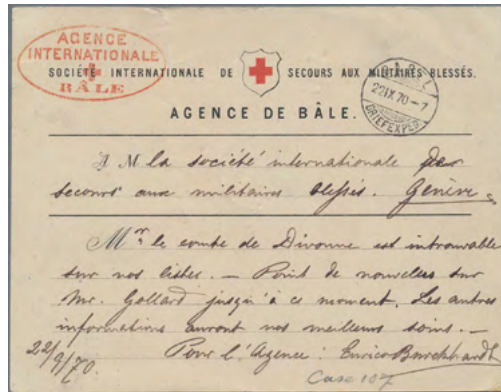 AGENCE
INTERNATIONALE
BÂLE
SOCIÉTÉ INTERNATIONALE DE SECOURS AUX MILITAIRES BLESSÉS.
BASEL
22 IX 70 - 7
BRIEFEXPED
AGENCE DE BÂLE.
A M la société internationale de
secours aux militaires blessés. Genève
Mr. le comte de Divonne est introuvable
sur nos listes. — Point de nouvelles sur
Mr. Gollard jusqu'à ce moment. Les autres
informations auront nos meilleurs soins. —
22/9/70. Pour l'Agence: Enrico Burckhardt
Case 107